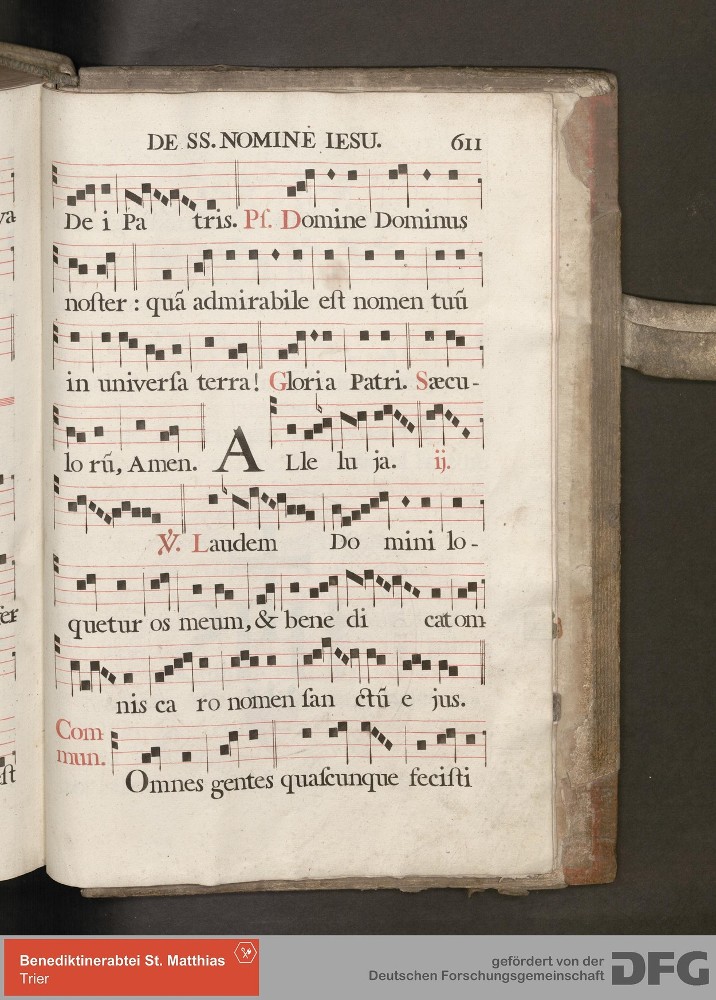 DE SS. NOMINE IESU. 611
De i Pa tris. Pſ. Domine Dominus
noſter : quā admirabile eſt nomen tuū
in univerſa terra! Gloria Patri. Sæcu-
lo rū, Amen. A Lle lu ja. ij.
℣. Laudem Do mini lo-
quetur os meum, & bene di cat om-
nis ca ro nomen ſan ctū e jus.
Com
mun.
Omnes gentes quaſcunque feciſti
Benediktinerabtei St. Matthias
Trier
gefördert von der
Deutschen Forschungsgemeinschaft
DFG